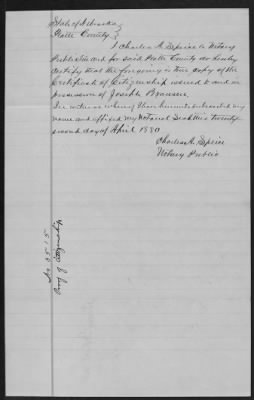 State of Nebraska
Platte County
I Charles A. Speice a Notary
Public in and for said Platte County do hereby
certify that the foregoing is true copy of the
Certificate of Citizenship issued to and in
possession of Joseph
In witness whereof I have hereunto subscribed my
name and affixed my Notarial Seal this twenty-
second day of April 1880
Charles A. Speice
Notary Public
No 3515
Proof of Citizenship